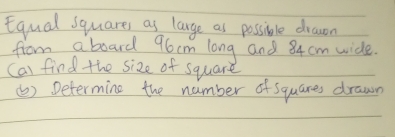 Equal squares as large as possible drawn
from a board 96cm long and 84cm wide.
(a) find the size of square
(b) Determine the number of squares drawn